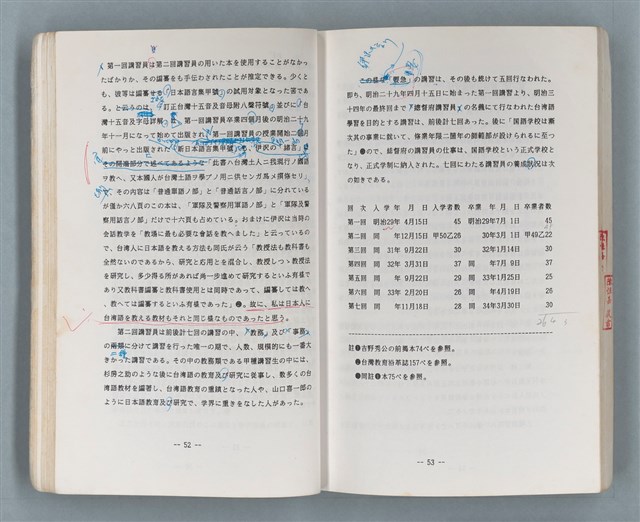 第一回講習員は第二回講習員の用いた本を使用することがなかっ
たばかりか、その編纂をも手伝わされたことが推定できる。少くと
も、彼等は編纂せる「日本語言集甲號」の試用対象となった筈であ
る。
訂正台灣十五音及字母附八聲符號
並びに「台
灣十五音及字母詳解
第一回講習員卒業四個月後の明治二十九
年十一月になって始めて出版され、第一回講習員の授業開始二個月
前にやっと出版された「新日本語言集甲號」も、伊沢の「緒言」
その開港部分で述べてあるような「此書ハ台灣土人ニ我現行ノ國語
ヲ教ヘ、又本國人が台灣土語ヲ學ブノ用ニ供センガ爲メ撰修セリ」
で、その内容は「普通單語ノ部」と「普通言語ノ部」に分れている
が僅か六八頁のこの本は、「軍隊及警察用單語ノ部」と「軍隊及警
察用語言ノ部」だけで十六頁も占めている。おまけに伊沢は当時の
会話教学を「教場に最も必要な會話を教へました」と云っているの
で、台湾人に日本語を教える方法も同氏が云う「教授法も教科書も
全然ないのであるから、研究と応用とを混合し、教授しつゝ教授法
を研究し、多少得る所があれば尚一歩進めて研究するといふ有様で
あり又教科書編纂と教科書使用とは同時であって、編纂しては教へ
、教へては編纂するといふ有様であった」❸。故に、私は日本人に
台湾語を教える教材もそれと同じ様なものであったと思う。
第二回講習員は前後計七回の講習の中、「教務」及び「事務」
の兩類に分けて講習を行った唯一の期で、人数、規模的にも一番大
きかった講習である。その中の教務類である甲種講習生の中には、
杉房之助のような後に台湾語の教育及び研究に従事し、数多くの台
湾語教材を編著し、台湾語教育の重鎮となった人や、山口喜一郎の
ように日本語教育及び研究で、学界に重きをなした人があった。
-- 52 --
この様な「戰急」の講習は、その後も続けて五回行なわれた。
即ち、明治二十九年四月十五日に始まった第一回講習より、明治三
十四年の最終回まで「總督府講習員」の名儀にて行なわれた台湾語
學習を目的とする講習は、前後計七回あった。後に「国語学校は漸
次其の事業に就いて、修業年限二箇年の師範部が設けられるに至っ
た」❹ので、総督府の講習員の仕事は、国語学校という正式学校と
なり、正式学制に納入された。七回にわたる講習員の養成狀況は次
の如きである。
回次 入学 年 月 日 入学者数 卒業 年 月 日 卒業者数
第一回 明治29年 4月15日 45 明治29年7月 1日 45
第二回 同 年12月15日 甲50乙26 30年3月 1日 甲49乙22
第三回 31年 9月22日 30 32年1月14日 30
第四回 32年 3月31日 30 同 年7月 9日 37
第五回 同 年 9月22日 29 33年1月25日 25
第六回 33年 2月20日 26 同 年4月19日 26
第七回 同 年11月18日 28 34年3月30日 30
註❶吉野秀公の前揭本74ぺを参照。
❷台灣教育沿革誌157ぺを参照。
❸同註❶本75ぺを参照。
-- 53 --